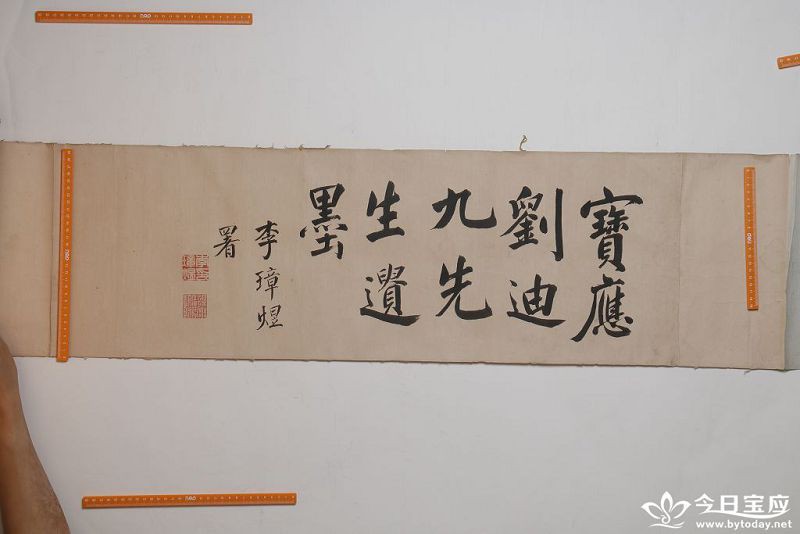 寶應
劉迪
九先
生遺
墨
李璋煜
署
今日宝应
www.bytoday.net